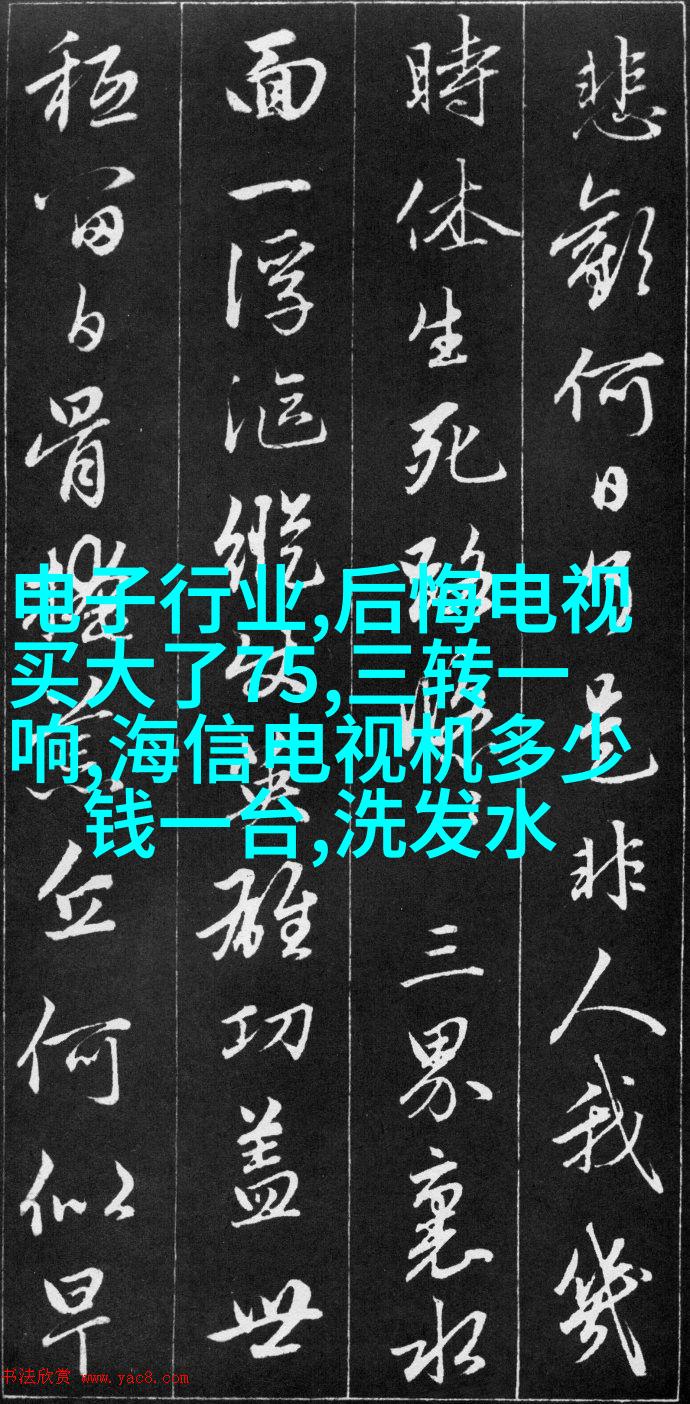 悲歡何日了是非人我幾
時休生死路悠三界裏水
面一浮漚縱使英雄功蓋世
秖留白骨掩荒丘何似早
电子行业,后悔电视
买大了75,三转一
响,海信电视机多少
钱一台,洗发水
书法欣赏 www.yac8.com